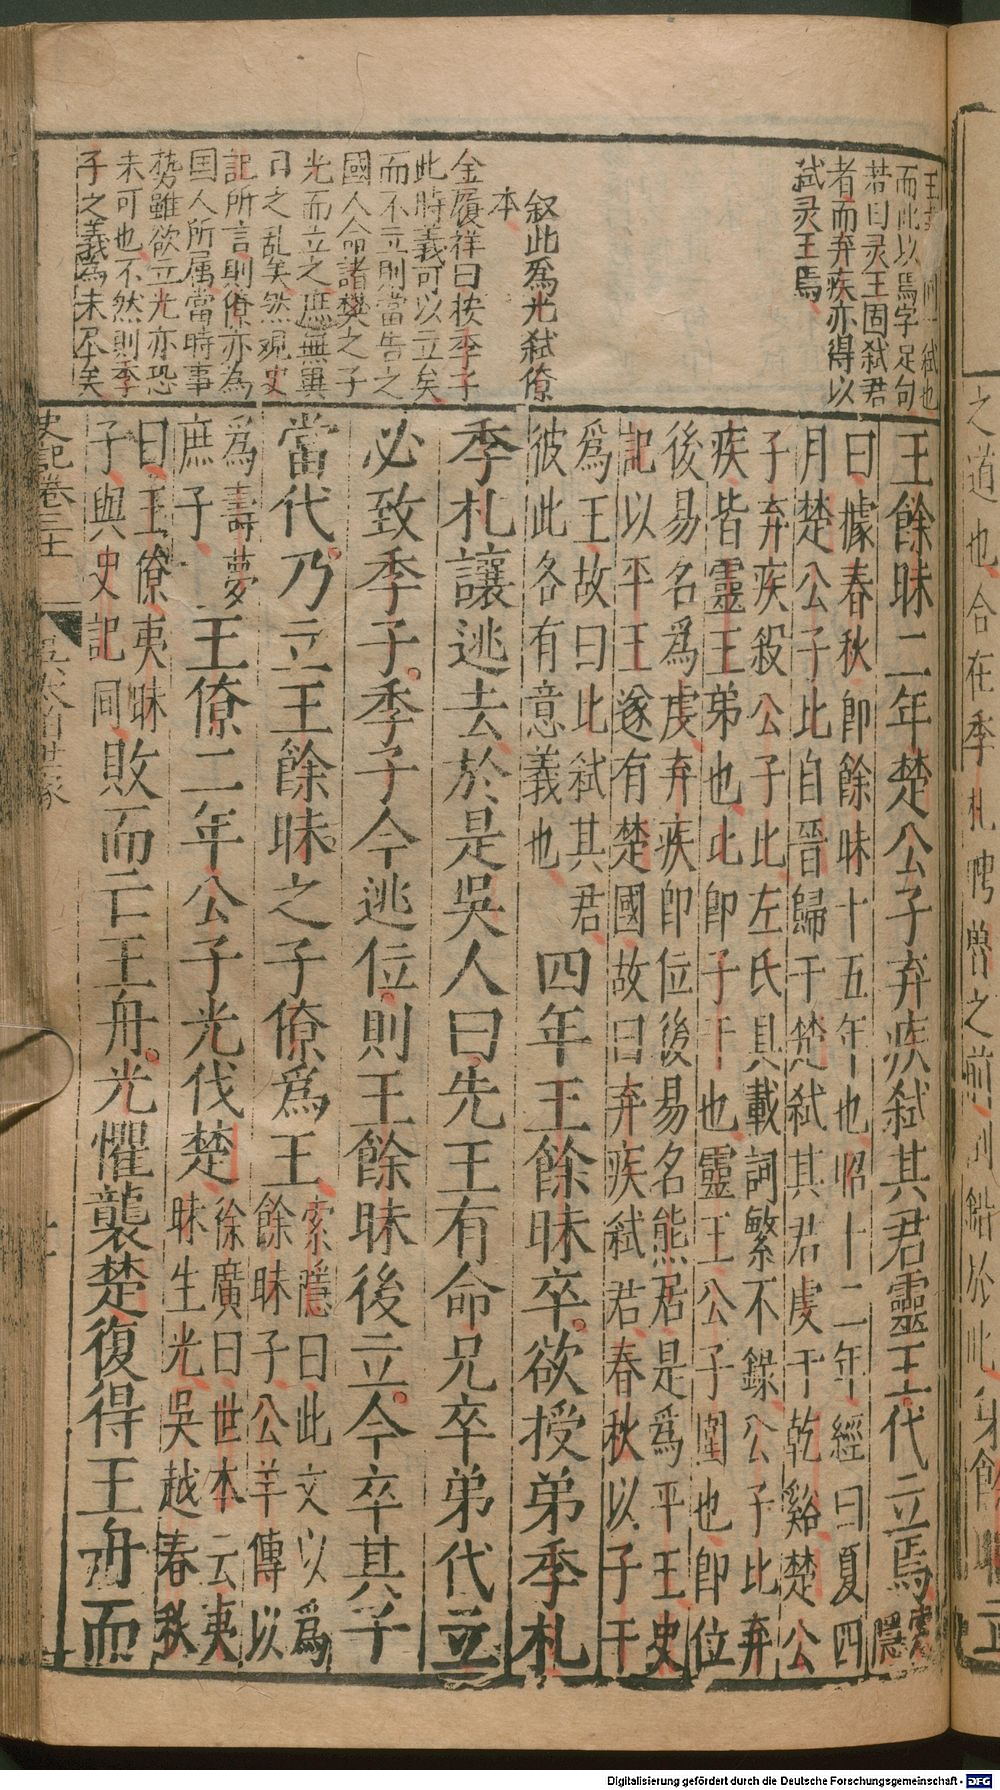 而此以焉字足句
若曰灵王固弑君
者而弃疾亦得以
弑灵王焉
叙此爲光弑僚
本
金履祥曰按季子
此時義可以立矣
而不立則當告之
國人命諸樊之子
光而立之庶無異
日之乱矣然观史
記所言則僚亦為
国人所属當時事
勢雖欲立光亦恐
未可也不然則季
子之義為未尽矣
王餘昧二年楚公子弃疾弑其君靈王代立焉索隱
曰據春秋即餘昧十五年也昭十二年經曰夏四
月楚公子比自晉歸于楚弑其君虔于乾谿楚公
子弃疾殺公子比左氏具載詞繁不錄公子比弃
疾皆靈王弟也比即子干也靈王公子圍也即位
後易名爲虔弃疾即位後易名熊居是爲平王史
記以平王遂有楚國故曰弃疾弑君春秋以子干
爲王故曰比弑其君
彼此各有意義也
四年王餘昧卒欲授弟季札
季札讓逃去於是吳人曰先王有命兄卒弟代立
必致季子季子今逃位則王餘昧後立今卒其子
當代乃立王餘昧之子僚爲王索隱曰此文以爲
餘昧子公羊傳以
爲壽夢
庶子
王僚二年公子光伐楚徐廣曰世本云夷
昧生光吳越春秋
曰王僚夷昧
子與史記同
敗而亡王舟光懼襲楚復得王舟而
史記卷三十一
吳太伯世家
Digitalisierung gefördert durch die Deutsche Forschungsgemeinschaft - DFG